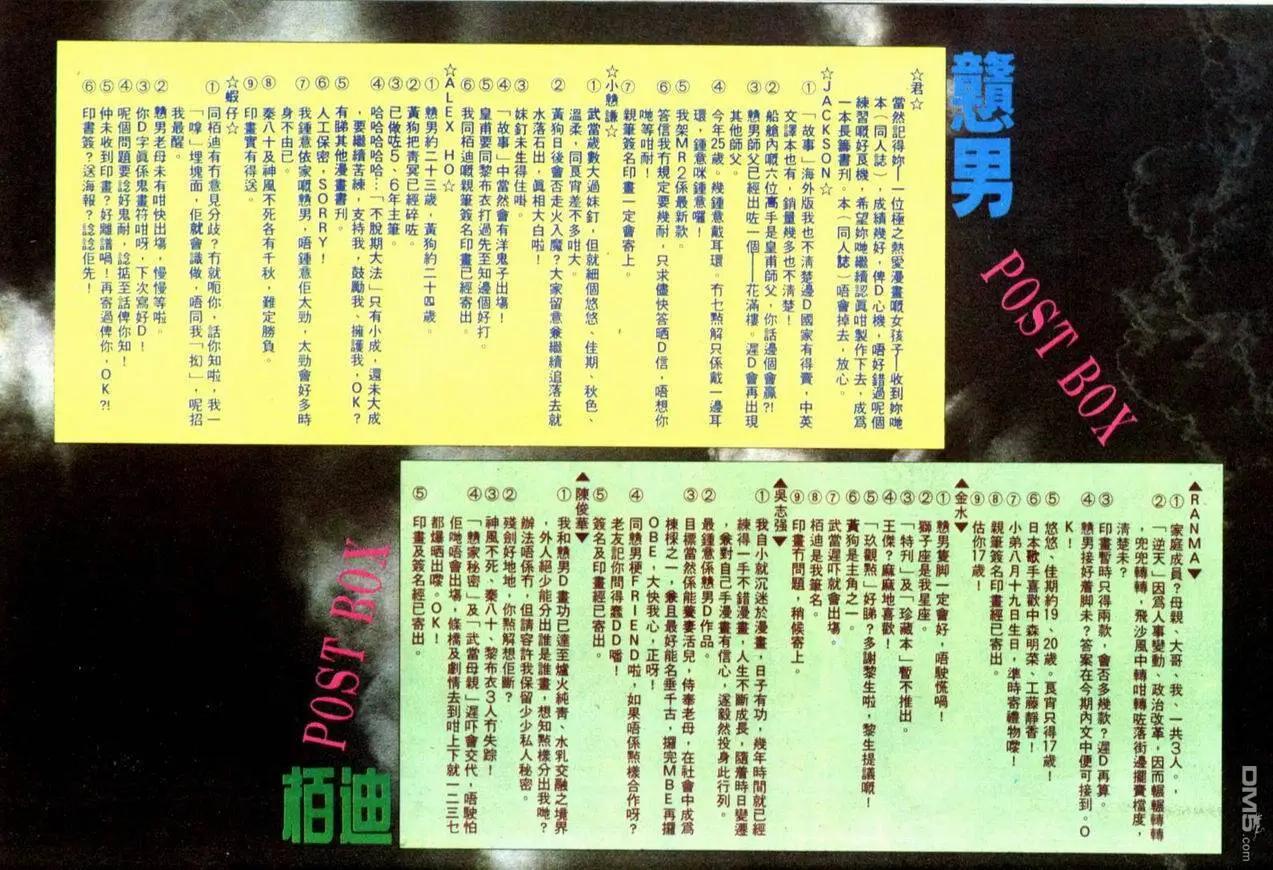 戇男
POST BOX
☆君☆
當然記得妳——一位極之熱愛漫畫嘅女孩子——收到妳哋
本（同人誌），成績幾好，俾D心機，唔好錯過呢個
練習嘅好良機，希望妳哋繼續認真咁製作下去，成爲
一本長篇書刊。本（同人誌）唔會掉去，放心。
☆JACKSON☆
①「故事」海外版我也不清楚邊D國家有得賣，中英
文譯本也有，銷量幾多也不清楚！
②船艙內嘅六位高手是皇甫師父，你話邊個會贏?!
③戇男師父已經出咗一個——花滿樓。遲D會再出現
其他師父。
④今年25歲。幾鍾意戴耳環。冇乜點解只係戴一邊耳
環，鍾意咪鍾意囉！
⑤我架MR2係最新款。
⑥答信我冇規定要幾耐，只求儘快答晒D信，唔想你
哋等咁耐！
⑦親筆簽名印畫一定會寄上。
☆小戇謙☆
①武當歲數大過妹釘，但就細個悠悠、佳期、秋色、
溫柔，同良宵差不多咁大。
②黃狗日後會否走火入魔？大家留意兼繼續追落去就
水落石出，眞相大白啦！
③妹釘未生得住啩。
④「故事」中當然會有洋鬼子出塲！
⑤皇甫要同黎布衣打過先至知邊個好打。
⑥我同栢迪嘅親筆簽名印畫已經寄出。
☆ALEX HO☆
①戇男約二十三歲，黃狗約二十四歲。
②黃狗把靑冥已經碎咗。
③已做咗5、6年主筆。
④哈哈哈哈哈…「不脫期大法」只有小成，還未大成
，要繼續苦練，支持我，鼓勵我、擁護我，OK？
⑤有睇其他漫畫書刊。
⑥人工保密，SORRY！
⑦我鍾意依家嘅戇男，唔鍾意佢太勁，太勁會好多時
身不由己。
⑧秦八十及神風不死各有千秋，難定勝負。
⑨印畫實有得送。
☆蝦仔☆
①同栢迪有冇意見分歧？冇就呃你，話你知啦，我一
「嘷」埋塊面，佢就會識做，唔同我「拗」，呢招
我最醒。
②戇男老母未有咁快出塲，慢慢等啦。
③你D字眞係鬼畫符咁呀，下次寫好D！
④呢個問題要諗好鬼耐，諗掂至話俾你知！
⑤仲未收到印畫？好離譜喎！再寄過俾你，OK?!
⑥印書簽？送海報？諗諗佢先！
▲RANMA▼
①家庭成員？母親、大哥、我、一共3人。
②「逆天」因爲人事變動、政治改革，因而輾輾轉轉
，兜兜轉轉，飛沙風中轉咁轉咗落街邊擺賣檔度，
清楚未？
③印畫暫時只得兩款，會否多幾款？遲D再算。
④戇男接好着脚未？答案在今期內文中便可接到。O
K！
⑤悠悠、佳期約19、20歲。良宵只得17歲！
⑥日本歌手喜歡中森明榮、工藤靜香！
⑦小弟八月十九日生日，準時寄禮物嚟！
⑧親筆簽名印畫經已寄出。
⑨估你17歲！
▲金水▼
①戇男隻脚一定會好，唔駛慌喎！
②獅子座是我星座。
③「特刋」及「珍藏本」暫不推出。
④王傑？麻麻地喜歡！
⑤「玖觀點」好睇？多謝黎生啦，黎生提議嘅！
⑥黃狗是主角之一。
⑦武當遲吓就會出塲。
⑧栢迪是我筆名。
⑨印畫冇問題，稍候寄上。
▲吳志强▼
①我自小就沉迷於漫畫，日子有功，幾年時間就已經
練得一手不錯漫畫，人生不斷成長，隨着時日變遷
，兼對自己手漫畫有信心，遂毅然投身此行列。
②最鍾意係戇男D作品。
③目標當然係能養妻活兒，侍奉老母，在社會中成爲
棟樑之一，兼且最好能名垂千古，攞完MBE再攞
OBE，大快我心，正呀！
④同戇男梗FRIEND啦，如果唔係點樣合作呀？
老友記你問得蠢DD噃！
⑤簽名及印畫經已寄出。
▲陳俊華▼
①我和戇男D畫功已達至爐火純靑、水乳交融之境界
，外人絕少能分出誰是誰畫，想知點樣分出我哋？
辦法唔係冇，但請容許我保留少少私人秘密。
②殘劍好地地，你點解想佢斷？
③神風不死、秦八十、黎布衣3人冇失踪！
④「贛家秘密」及「武當母親」遲吓會交代，唔駛怕
佢哋唔會出塲，條橋及劇情去到咁上下就一二三七
都爆晒出嚟。OK！
⑤印畫及簽名經已寄出。
POST BOX
栢迪
DM5.com